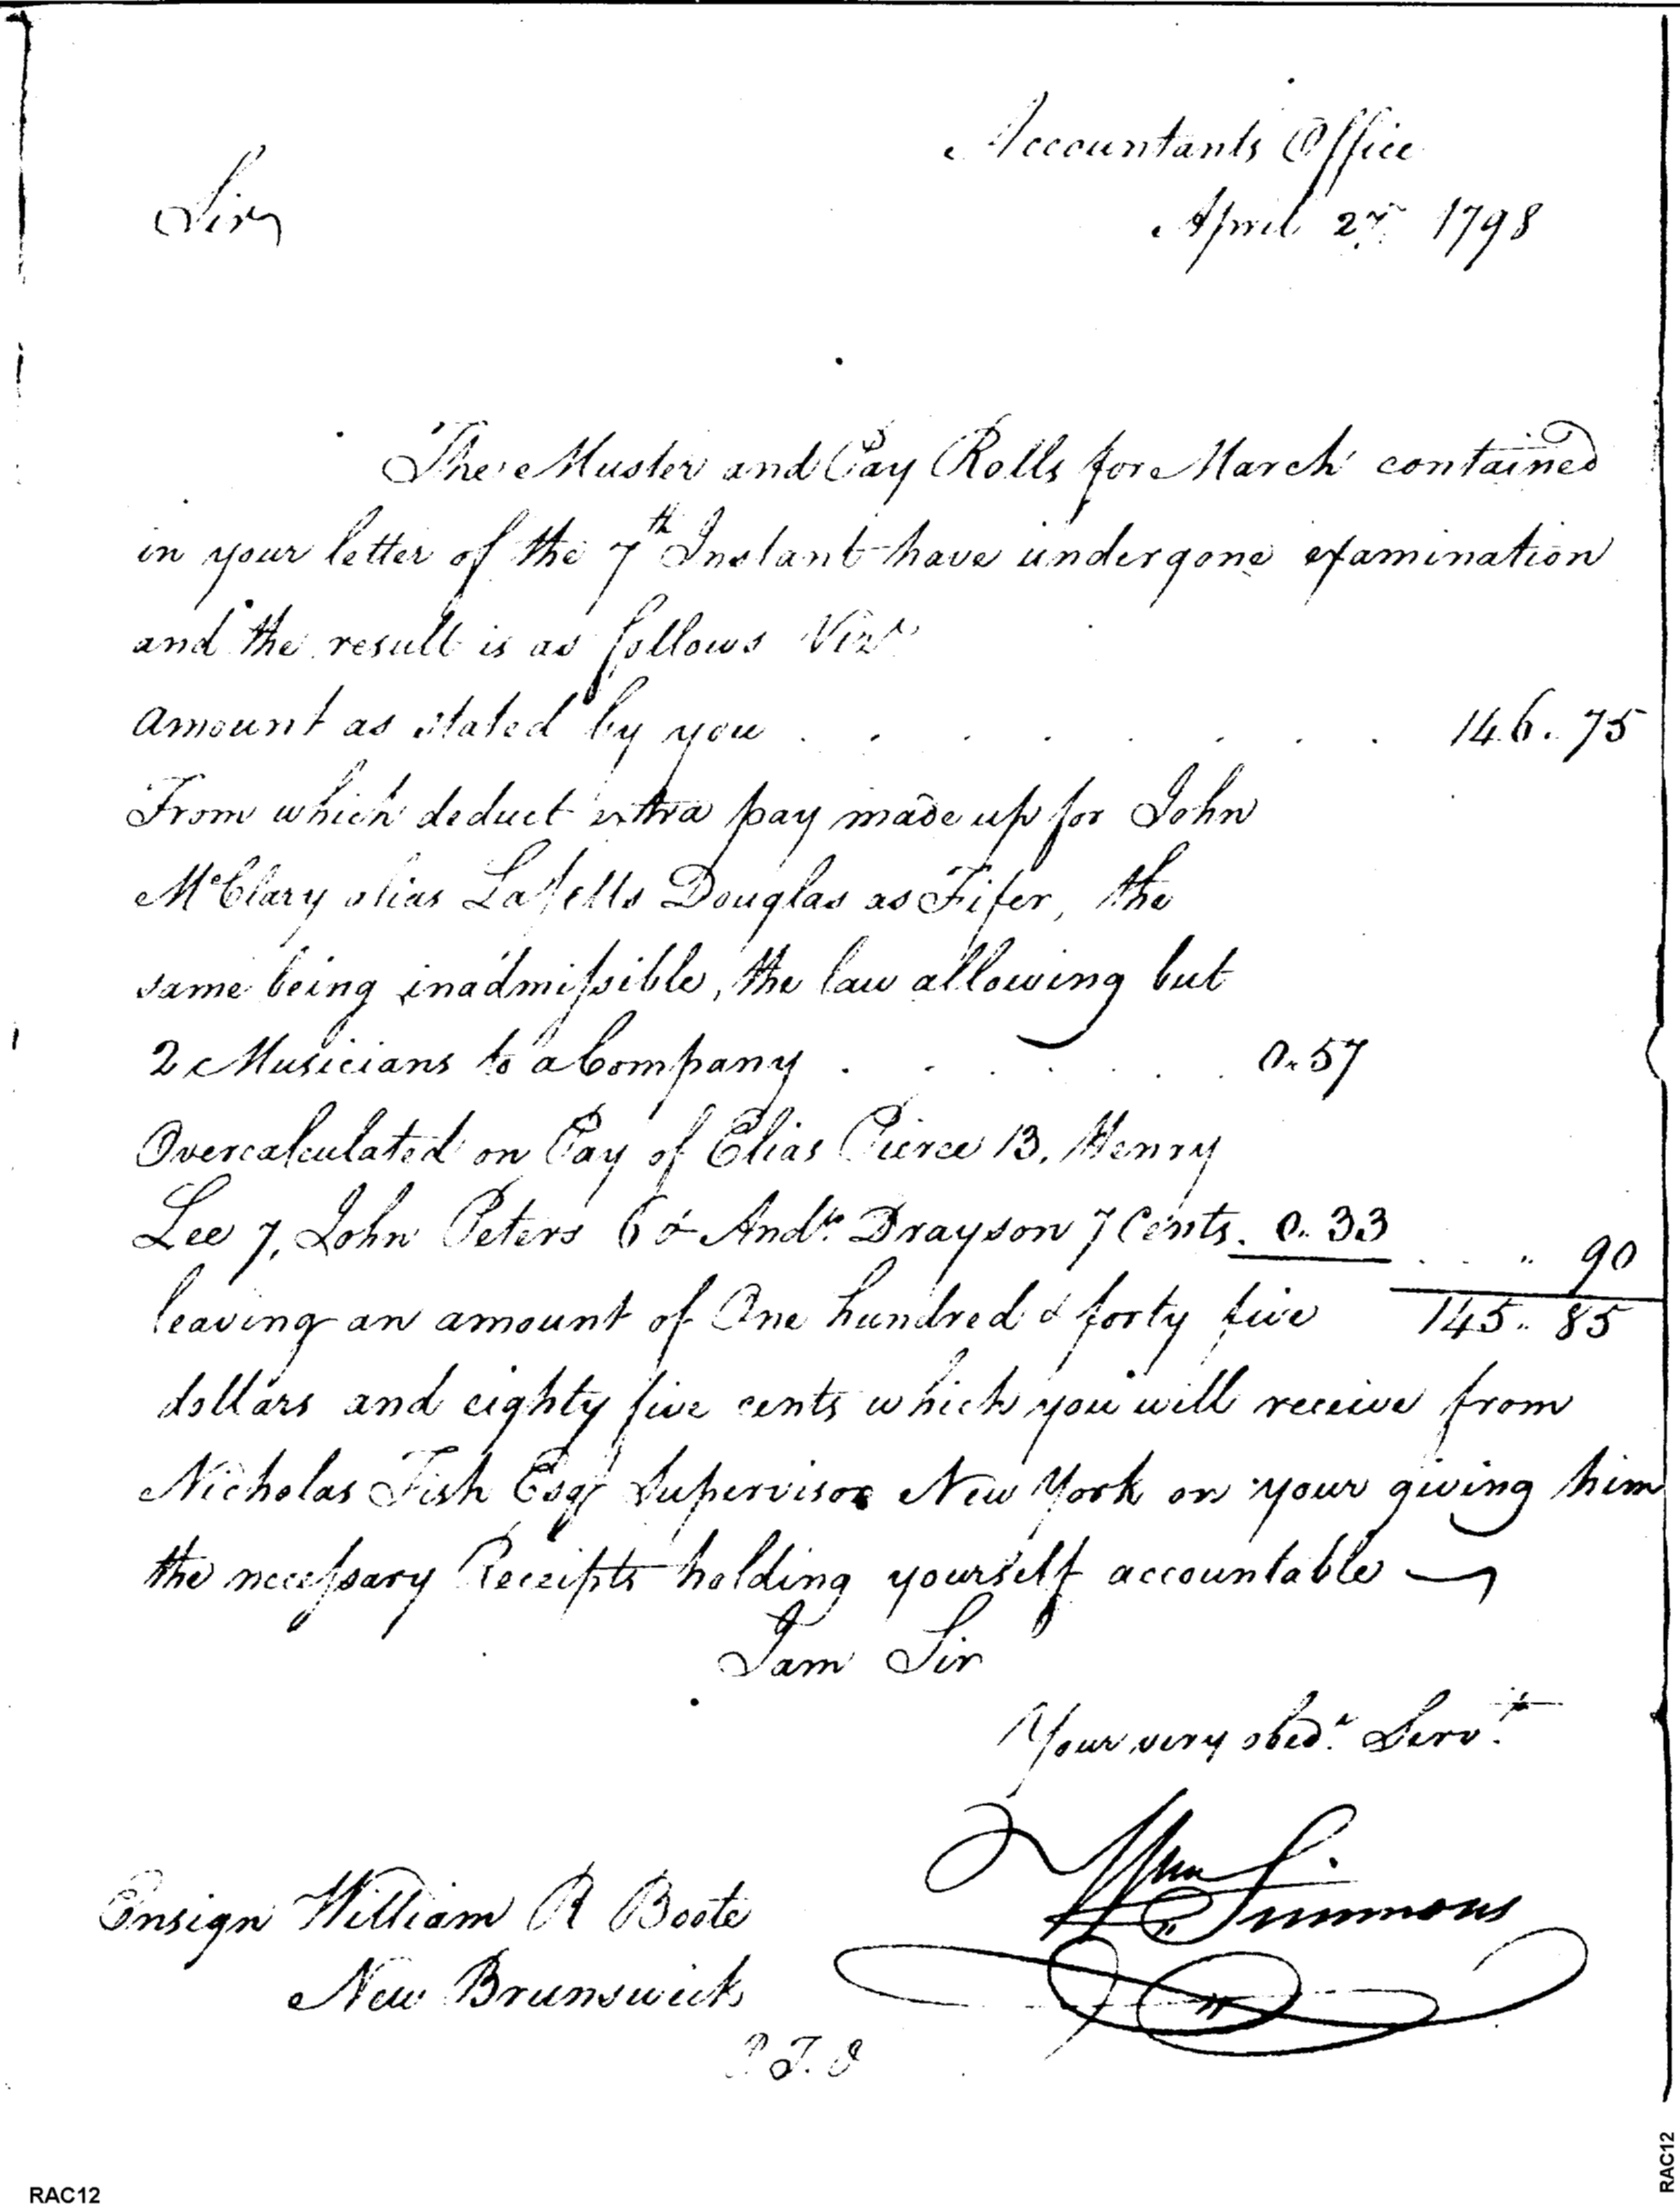 Accountants Office
Sir,
April 27. 1798
The Muster and Pay Rolls for March contained
in your letter of the 7th Instant have undergone examination
and the result is as follows Vizt
amount as stated by you . . . . . . . . 146. 75
From which deduct extra pay made up for John
McClary alias Douglas as Fifer, the
same being inadmissible, the law allowing but
2 Musicians to a Company . . . . . . 0.. 57
Overcalculated on Pay of Elias Pierce 13, Henry
Lee 7, John Peters 6 & Andw. Drayson 7 Cents. 0.. 33 . . " 90
leaving an amount of One hundred & forty five 145.. 85
dollars and eighty five cents which you will receive from
Nicholas Fish Esqr Supervisor New York on your giving him
the necessary Receipts holding yourself accountable
I am Sir
Your very obedt. Servt.
Wm Simmons
Ensign William R Boote
New Brunswick
P T. O
RAC12
RAC12